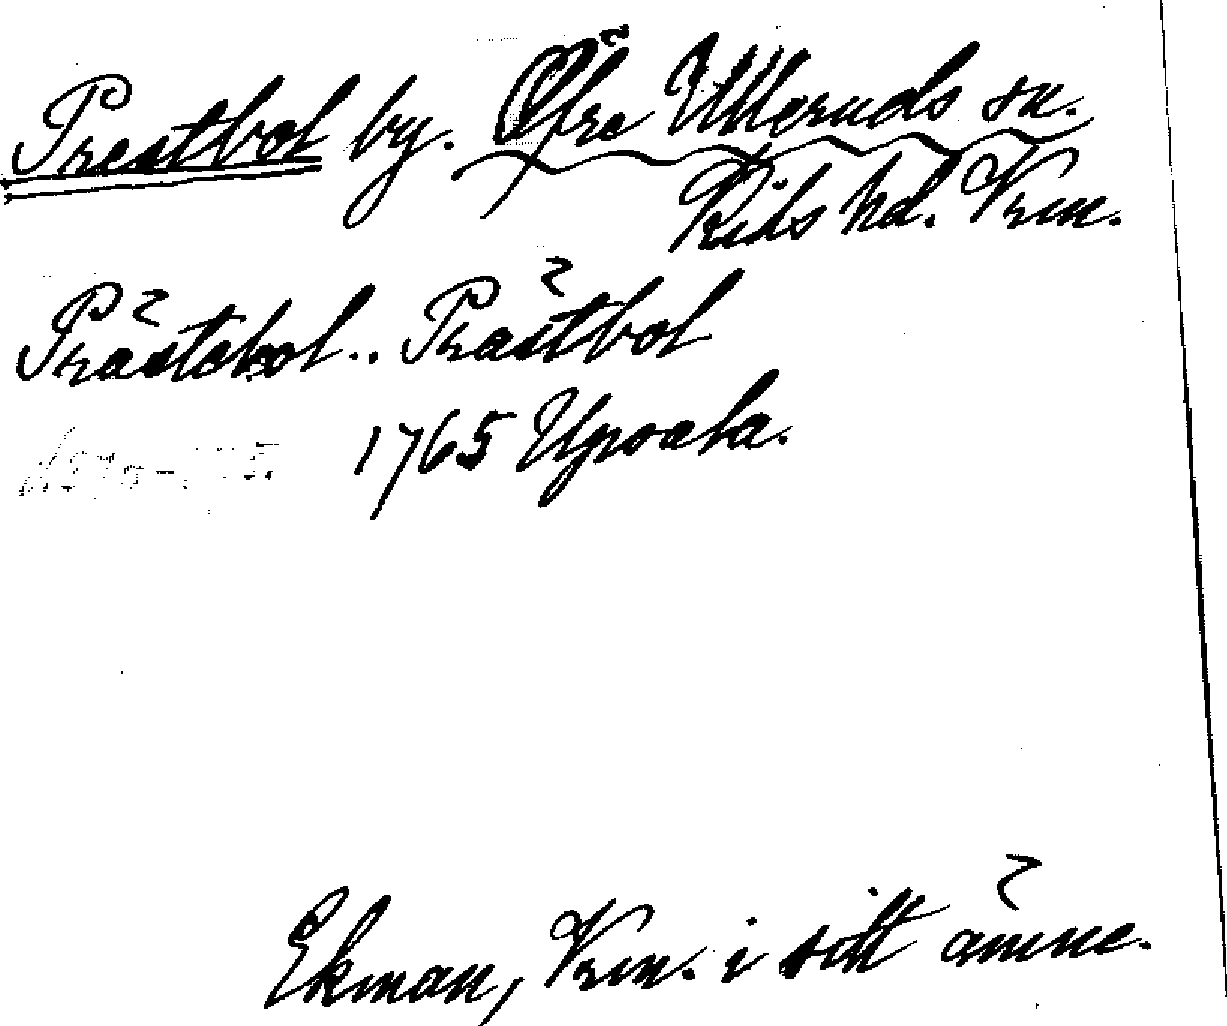 Prestbol by. Öfre Ulleruds sn.
Kils hd. Vrm.
Prästebol.. Prästbol
1765 Upsala.
Ekman, Vrm. i sitt ämne.